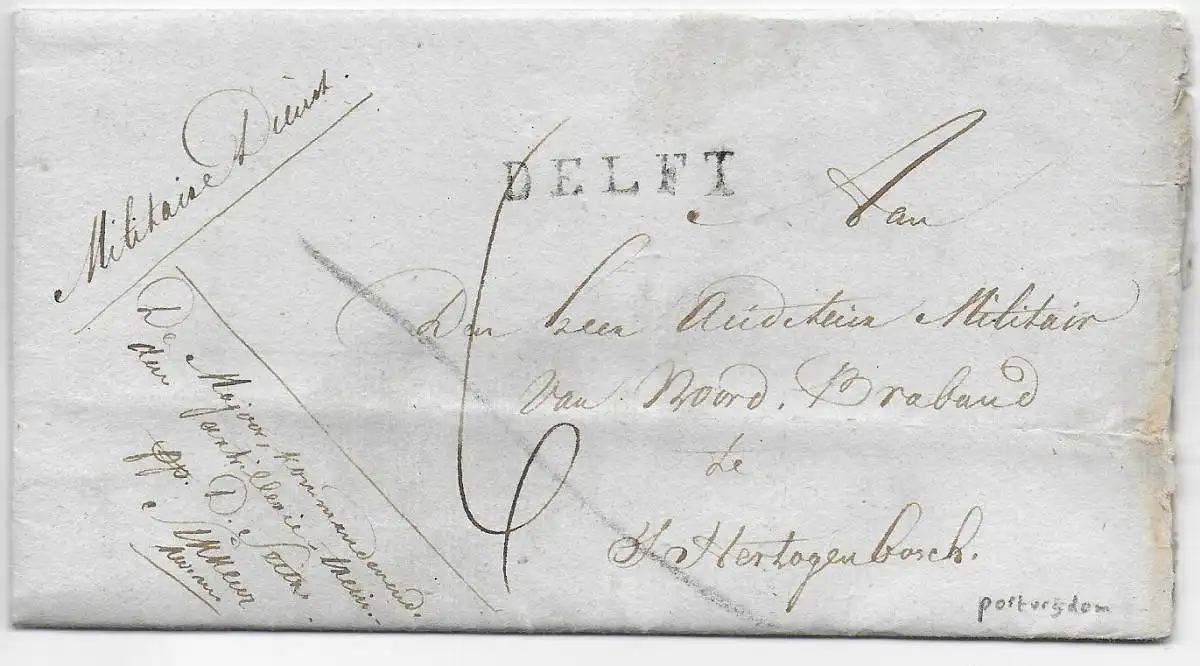 Militaire Dienst.
DELFT
Aan
Den heer Auditeur Militair
van Noord. Braband
te
S' Hertogenbosch.
De Majoor, kommandeerend.
den artillerie, trein.
op. D.
portvrijdom